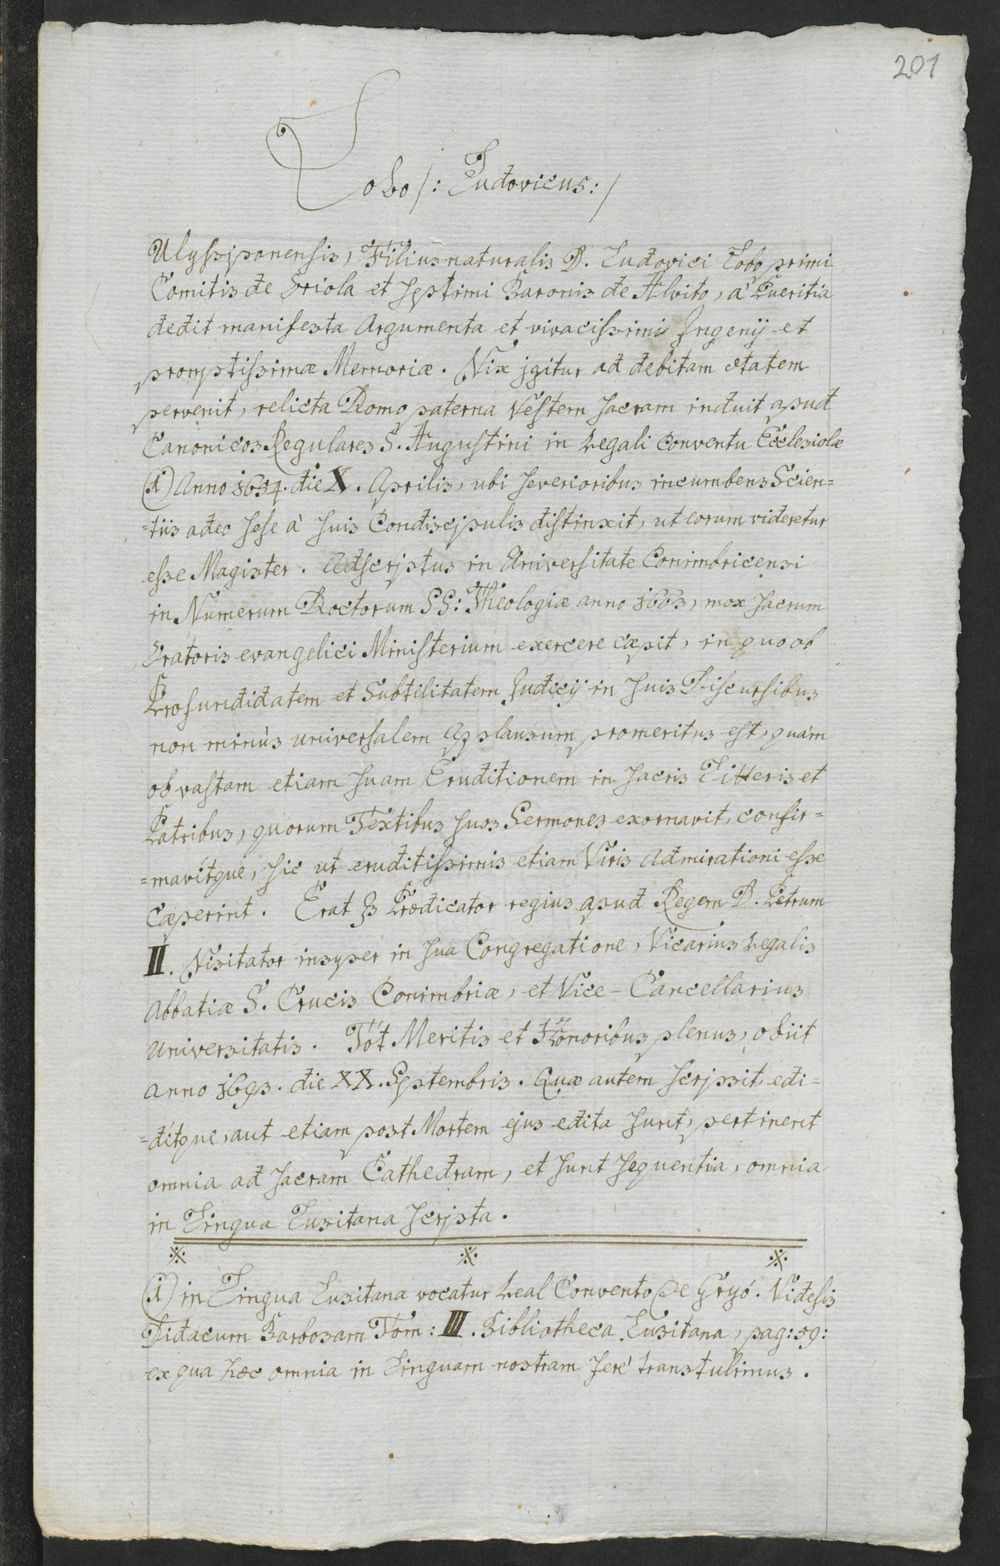 201
Lobo /: Ludovicus: /
Ulyssiponensis, Filius naturalis D. Ludovici Lobo primi
Comitis de Oriola et septimi Baronis de Alvito, à Pueritia
dedit manifesta Argumenta et vivacissimi Ingenij et
promptissimæ Memoriæ. Vix jgitur ad debitam ætatem
pervenit, relicta Domo paterna Vestem sacram induit apud
Canonicos Regulares S. Augustini in Regali Conventu Ecclesiolæ
(A) Anno 1654. die X. Aprilis, ubi severioribus incumbens Scien=
=tiis adeo sese à suis Condiscipulis distinxit, ut eorum videretur
esse Magister. Adscriptus in Universitate Conimbricensi
in Numerum Doctorum SS: Theologiæ anno 1663, mox sacrum
Oratoris evangelici Ministerium exercere cæpit, in quo ob
Profundidatem et Subtilitatem Judicij in suis Discursibus
non minùs universalem Applausum promeritus est, quàm
ob vastam etiam suam Eruditionem in sacris Litteris et
Patribus, quorum Textibus suos Sermones exornavit, confir=
=mavitque, sic ut eruditissimis etiam Viris Admirationi esse
cæperint. Erat Prædicator regius apud Regem D. Petrum
II. Visitator insuper in sua Congregatione, Vicarius Regalis
Abbatiæ S. Crucis Conimbriæ, et Vice-Cancellarius
Universitatis. Tót Meritis et Honoribus plenus, obiit
anno 1693. die XX. Septembris. Quæ autem scripsit edi=
=ditque, aut etiam post Mortem ejus edita sunt, pertinent
omnia ad sacram Cathedram, et sunt sequentia, omnia
in Lingua Lusitana scripta.
(A) in Lingua Lusitana vocatur Real Convento de Gryó. Videsis
Didacum Barbosam Tom: III. Bibliotheca Lusitana, pag: 59:
ex qua hæc omnia in Linguam nostram ferè transtulimus.